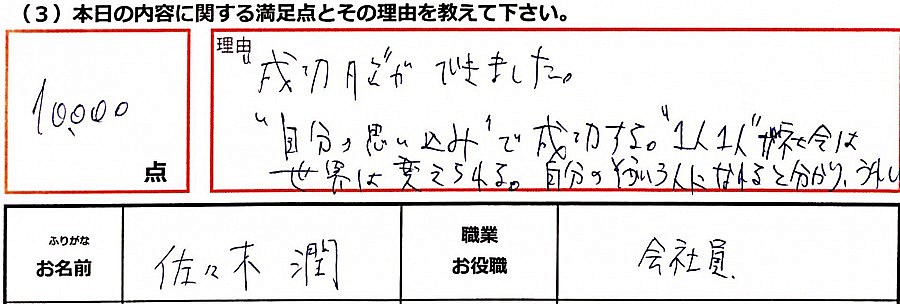 （3）本日の内容に関する満足点とその理由を教えて下さい。
10,000
点
理由
"成功脳"ができました。
"自分の思い込み"で成功する。"1人1人"が社会は
世界は変えられる。自分の 人になれると分かり、うれし
ふりがな
お名前
佐々木 潤
職業
お役職
会社員